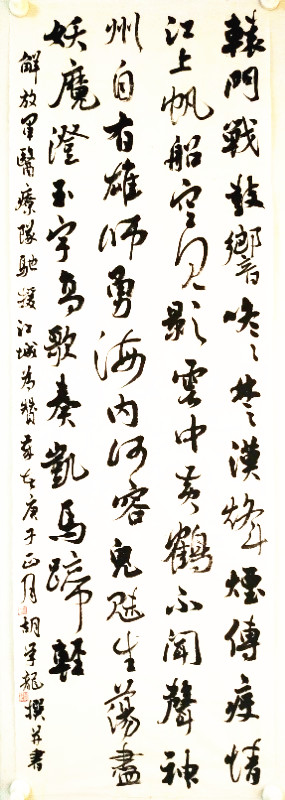 轅門戰鼓響咚咚楚漢烽煙傳疫情
江上帆船空見影雲中黃鶴不聞聲神
州自有雄師勇海内何容鬼魅生蕩盡
妖魔澄玉宇高歌奏凱馬蹄輕
解放軍醫療隊馳援江城為贊 歲在庚子正月胡学龍撰并書